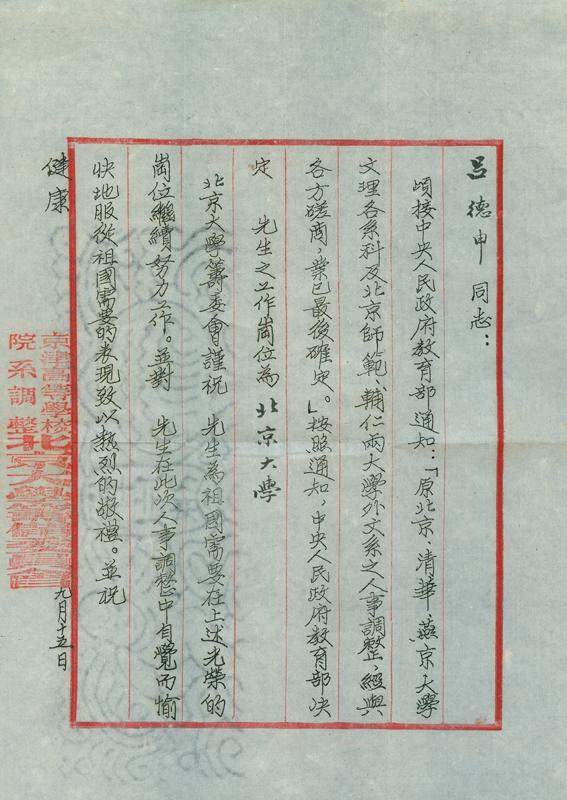 呂德申 同志：
頃接中央人民政府教育部通知：「原北京、清華、燕京大學
文理各系科及北京師範、輔仁兩大學外文系之人事調整，經與
各方磋商，業已最後確定。」按照通知，中央人民政府教育部決
定 先生之工作崗位為北京大學
北京大學籌委會謹祝 先生為祖國需要在上述光榮的
崗位繼續努力工作。並對 先生在此次人事調整中自覺而愉
快地服從祖國需要的表現致以熱烈的敬禮。並祝
健康
京津高等學校
院系調整北京大學籌備委員會
九月十五日